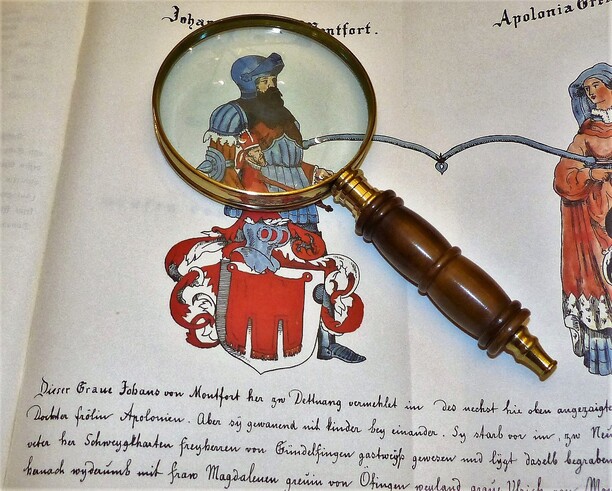 Montfort.
Apolonia
Dieser Graue Johans von Montfort her zu Dettnang vermehlet im des nechst hie oken angezaigte
Dochter frölin Apolonien. Aber sÿ gewanend nit kinder bey einander. Sy starb vor im, zw
veter her Schweygkharten freyherren von Gundelfingen gastweÿß gewesen und lÿgt daselb begraben
hanach wyderumb mit fraw Magdalenen greuin von Öfingen weyland graue Ulrich